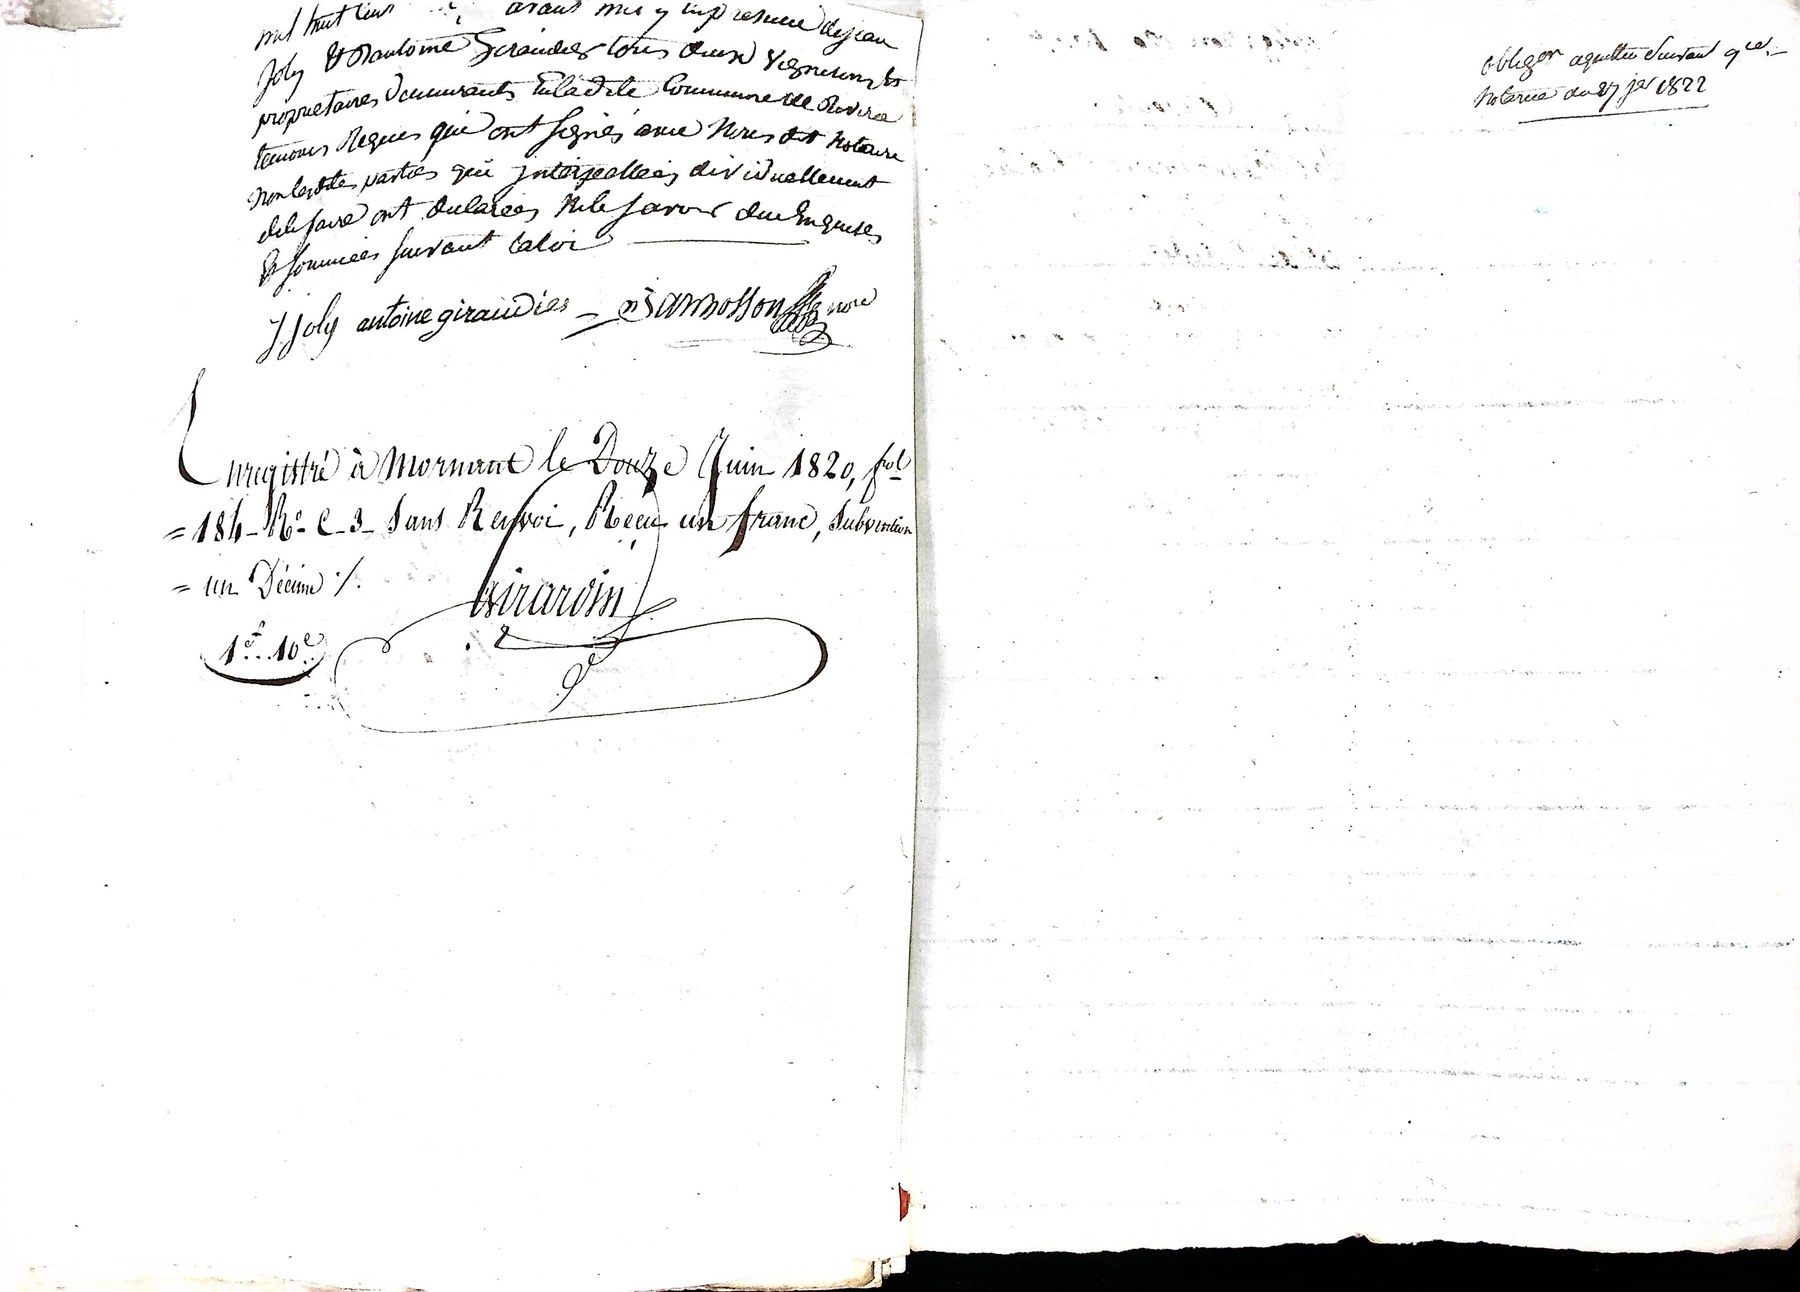 mil huit cent avant midy en presence de jean
Joly & d'antoine Giraudier tous deux vignerons &
proprietaires demeurants En ladite Commune de
temoins Requis qui ont signés avec Nous dit Notaire
Non lesdites parties qui interpellées dividuellement
de le faire ont declarées Ne le savoir de ce Enquises
& sommées suivant la loi
J Joly antoine giraudier nore
Enregistré à Mornant le Douze Juin 1820, fol
= 184 Ro C 3 Sans Renvoi, Reçu un franc, Subvention
= un Décime %.
Girardin
1f..10c
obligon aquittée suivant qce
Notariée du 27 jer 1822